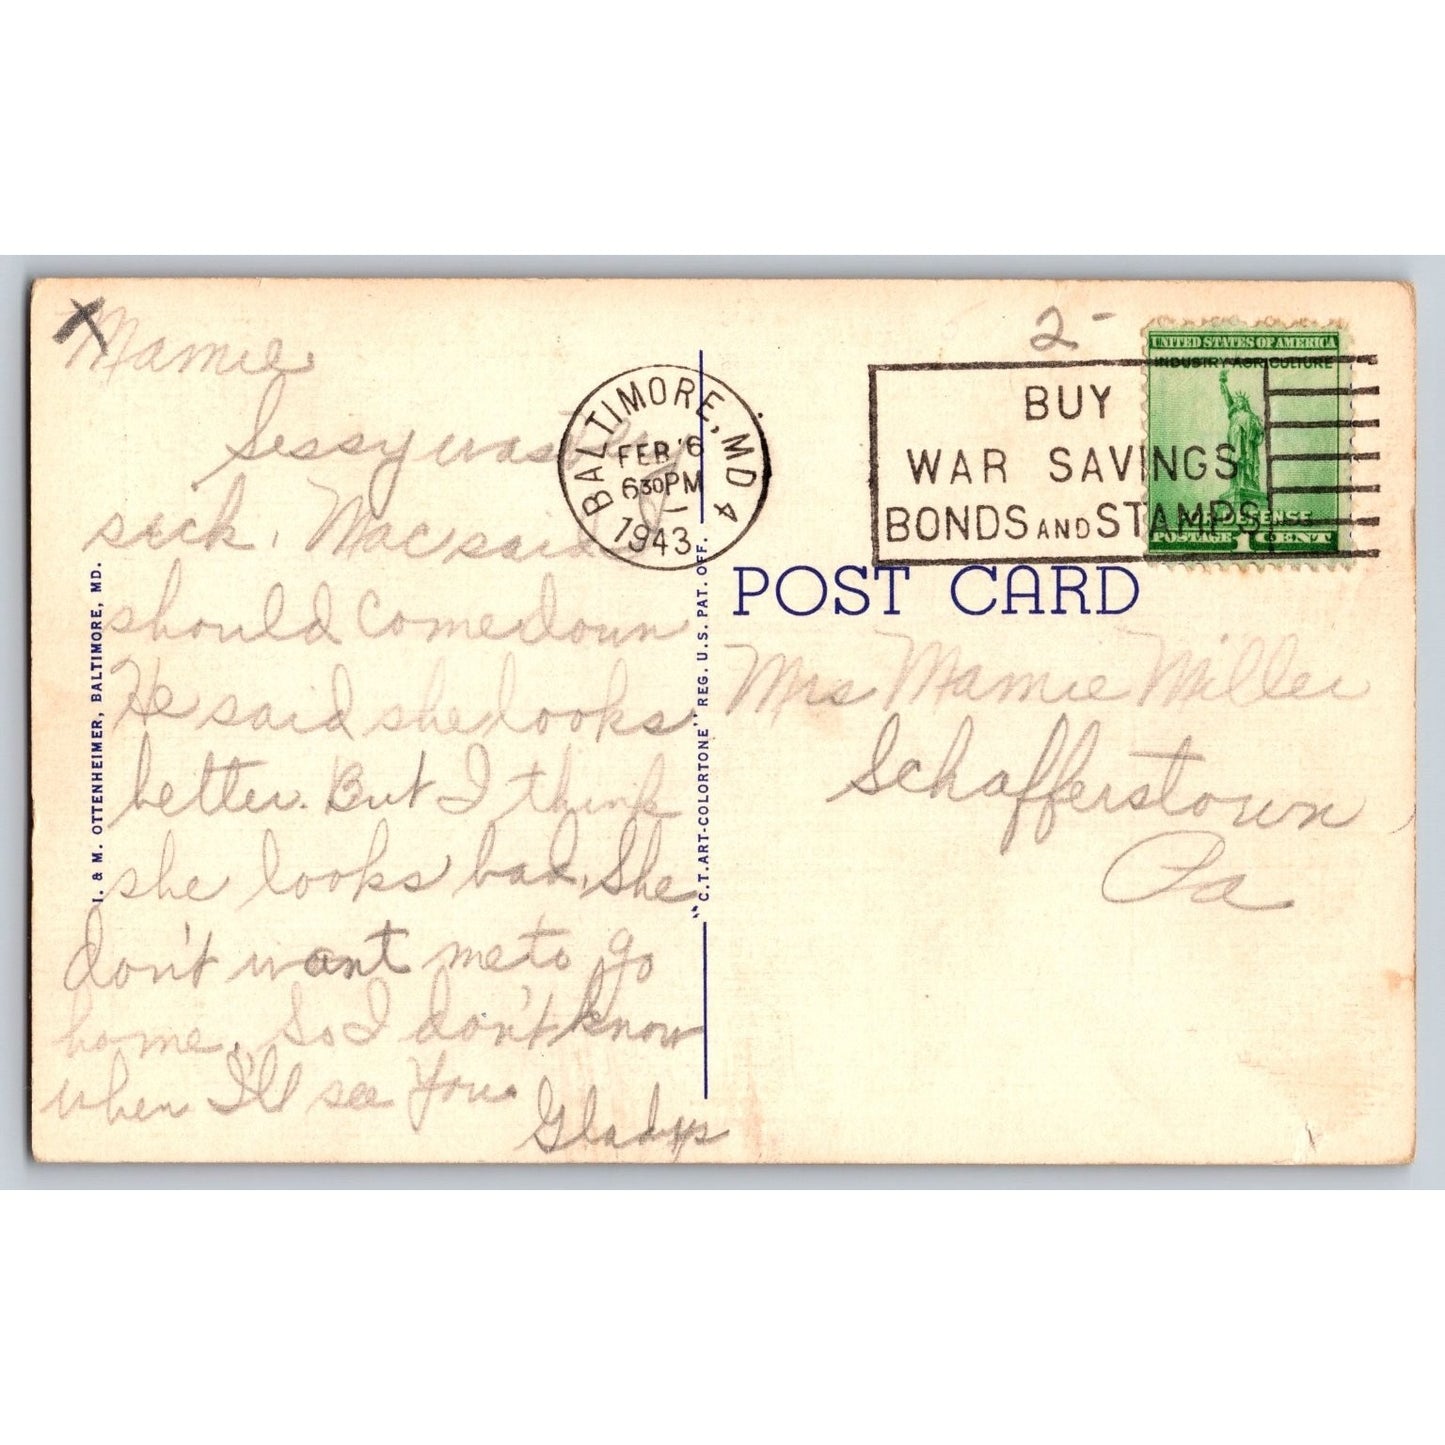 X
Mamie
Sessy was
sick. Mac said
should come down
He said she looks
better. But I think
she looks bad. She
don't want me to go
home. So I don't know
when I'll see you.
Gladys
I. & M. OTTENHEIMER, BALTIMORE, MD.
"C.T. ART-COLORTONE" REG. U.S. PAT. OFF.
BALTIMORE, MD 4
FEB 6
630PM
1943
2-
BUY
WAR SAVINGS
BONDS AND STAMPS
UNITED STATES OF AMERICA
INDUSTRY AGRICULTURE
FOR DEFENSE
POSTAGE 1 CENT
POST CARD
Mrs Mamie Miller
Schafferstown,
Pa